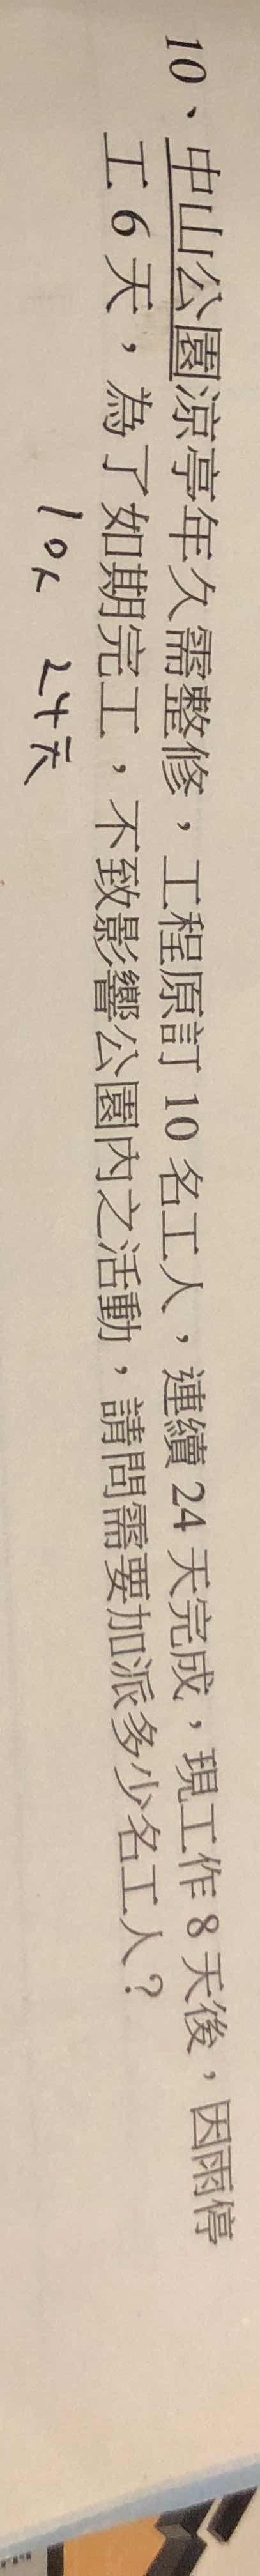 10、中山公園涼亭年久需整修，工程原訂 10 名工人，連續 24 天完成，現工作 8 天後，因雨停
工 6 天，為了如期完工，不致影響公園內之活動，請問需要加派多少名工人？
10人 24天